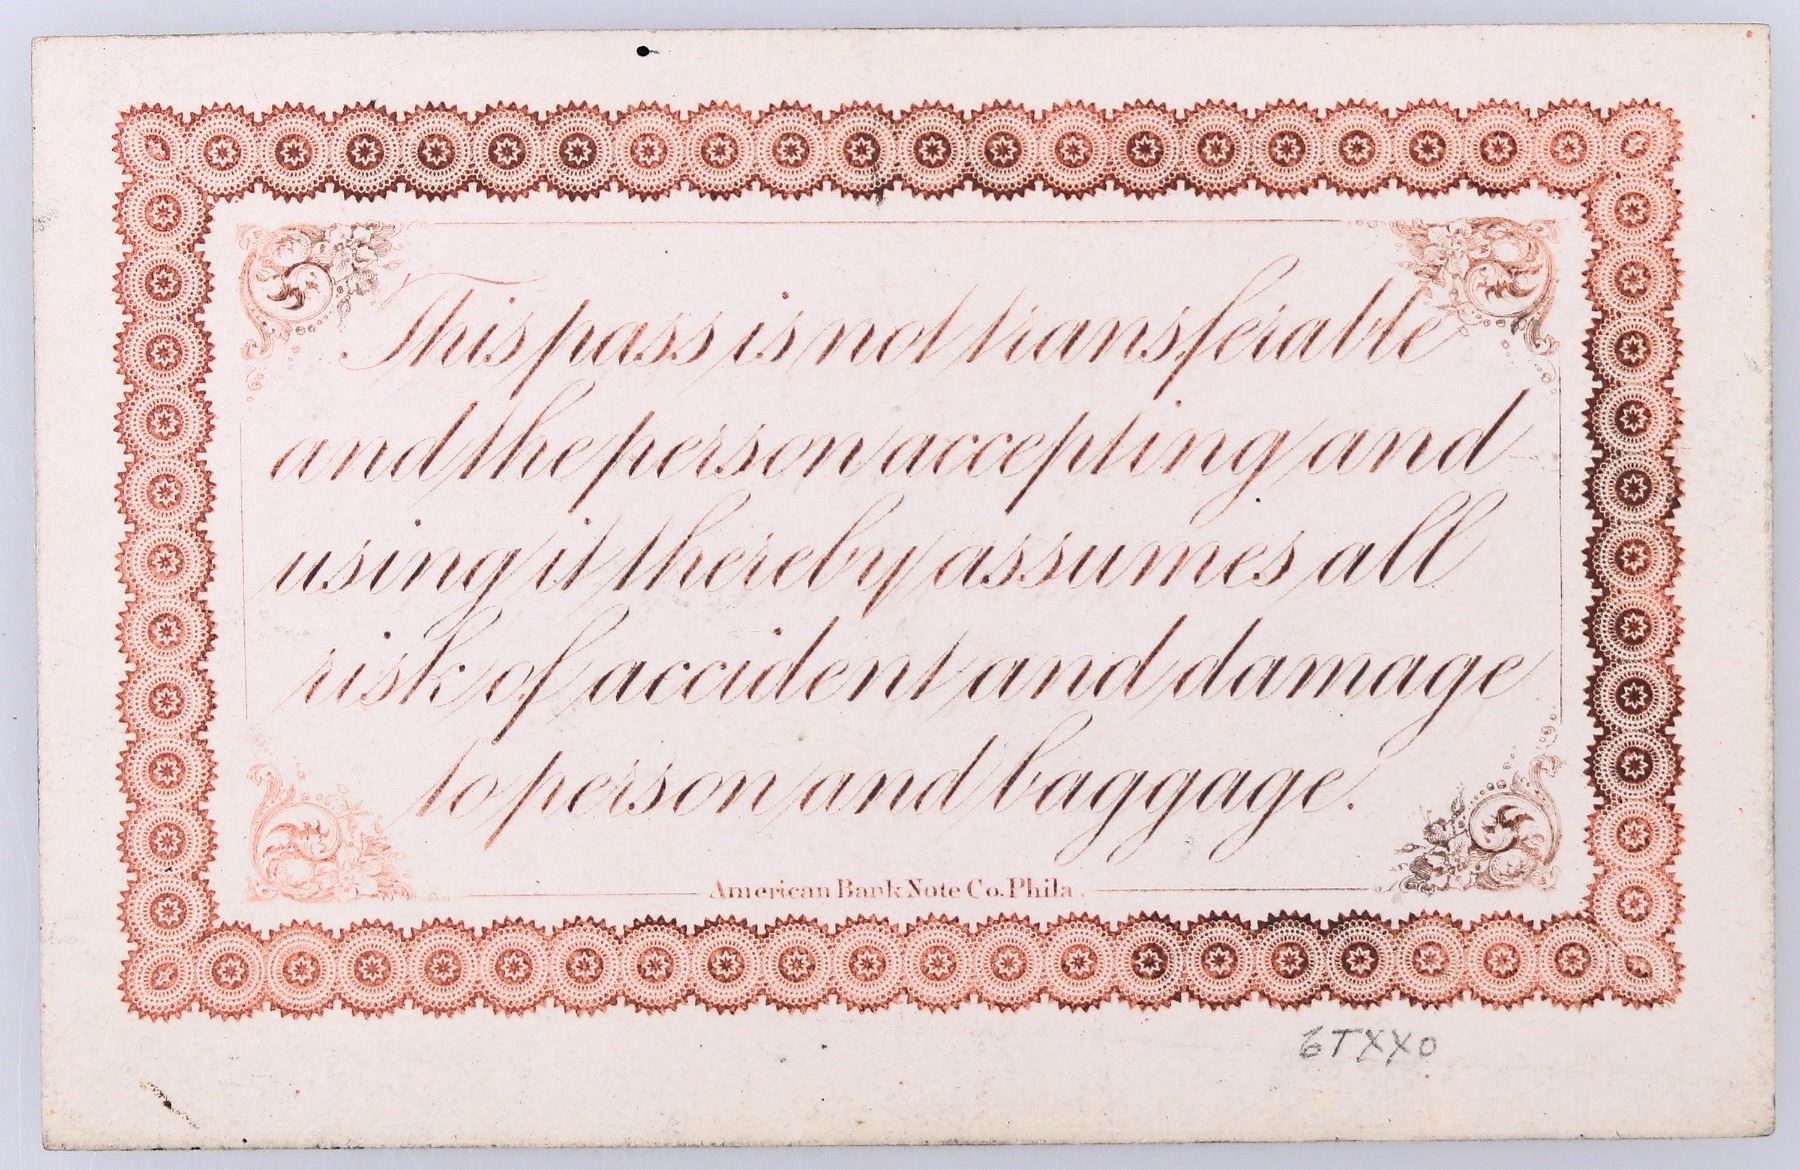 This pass is not transferable
and the person accepting and
using it thereby assumes all
risk of accident and damage
to person and baggage.
American Bank Note Co. Phila.
6TXXO